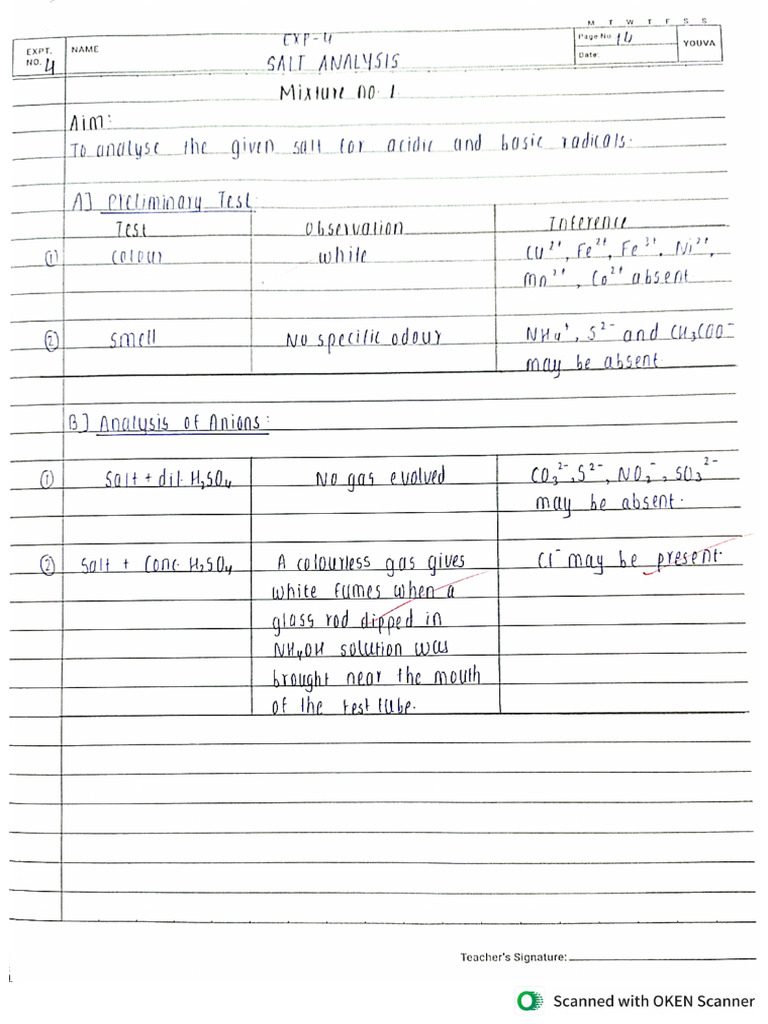 M T W T F S S
EXP-4
EXPT. NO. 4 NAME Page No. 14 YOUVA
SALT ANALYSIS Date:
Mixture no. 1
Aim:
To analyse the given salt for acidic and basic radicals.
A] Preliminary Test:
Test Observation Inference
① colour white Cu²⁺, Fe²⁺, Fe³⁺, Ni²⁺,
Mn²⁺, Co²⁺ absent
② smell No specific odour NH₄⁺, S²⁻ and CH₃COO⁻
may be absent.
B] Analysis of Anions:
① Salt + dil. H₂SO₄ No gas evolved CO₃²⁻, S²⁻, NO₂⁻, SO₃²⁻
may be absent.
② Salt + Conc. H₂SO₄ A colourless gas gives Cl⁻ may be present.
white fumes when a
glass rod dipped in
NH₄OH solution was
brought near the mouth
of the test tube.
Teacher's Signature:
Scanned with OKEN Scanner